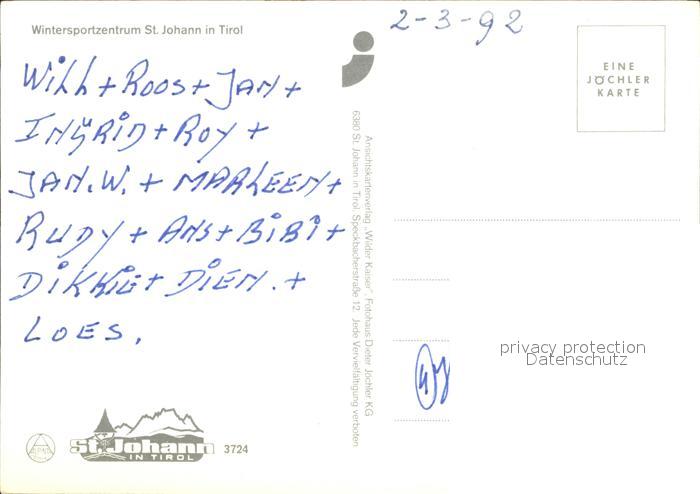 Wintersportzentrum St. Johann in Tirol
2-3-92
Will + Roos + Jan +
Ingrid + Roy +
Jan.W. + Marleen +
Rudy + Ans + Bibi +
Dikkie + Dien. +
Loes.
EINE
JÖCHLER
KARTE
Ansichtskartenverlag „Wilder Kaiser", Fotohaus Dieter Jöchler KG
6380 St. Johann in Tirol, Speckbacherstraße 12. Jede Vervielfältigung verboten
privacy protection
Datenschutz
St. Johann
IN TIROL
3724